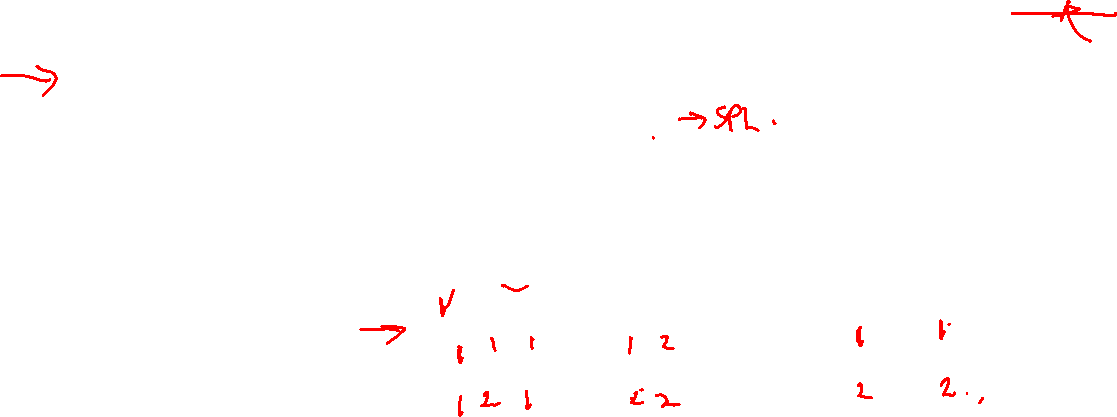 → SPL.
→ 1 1 1 1 2 1 1
1 2 1 2 2 2 2